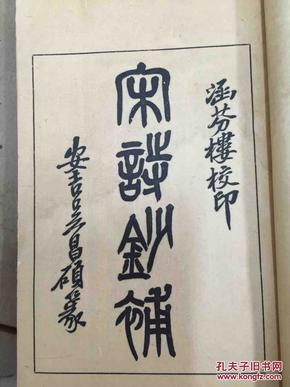 涵芬樓校印
宋詩鈔補
安吉吳昌碩篆
孔夫子旧书网